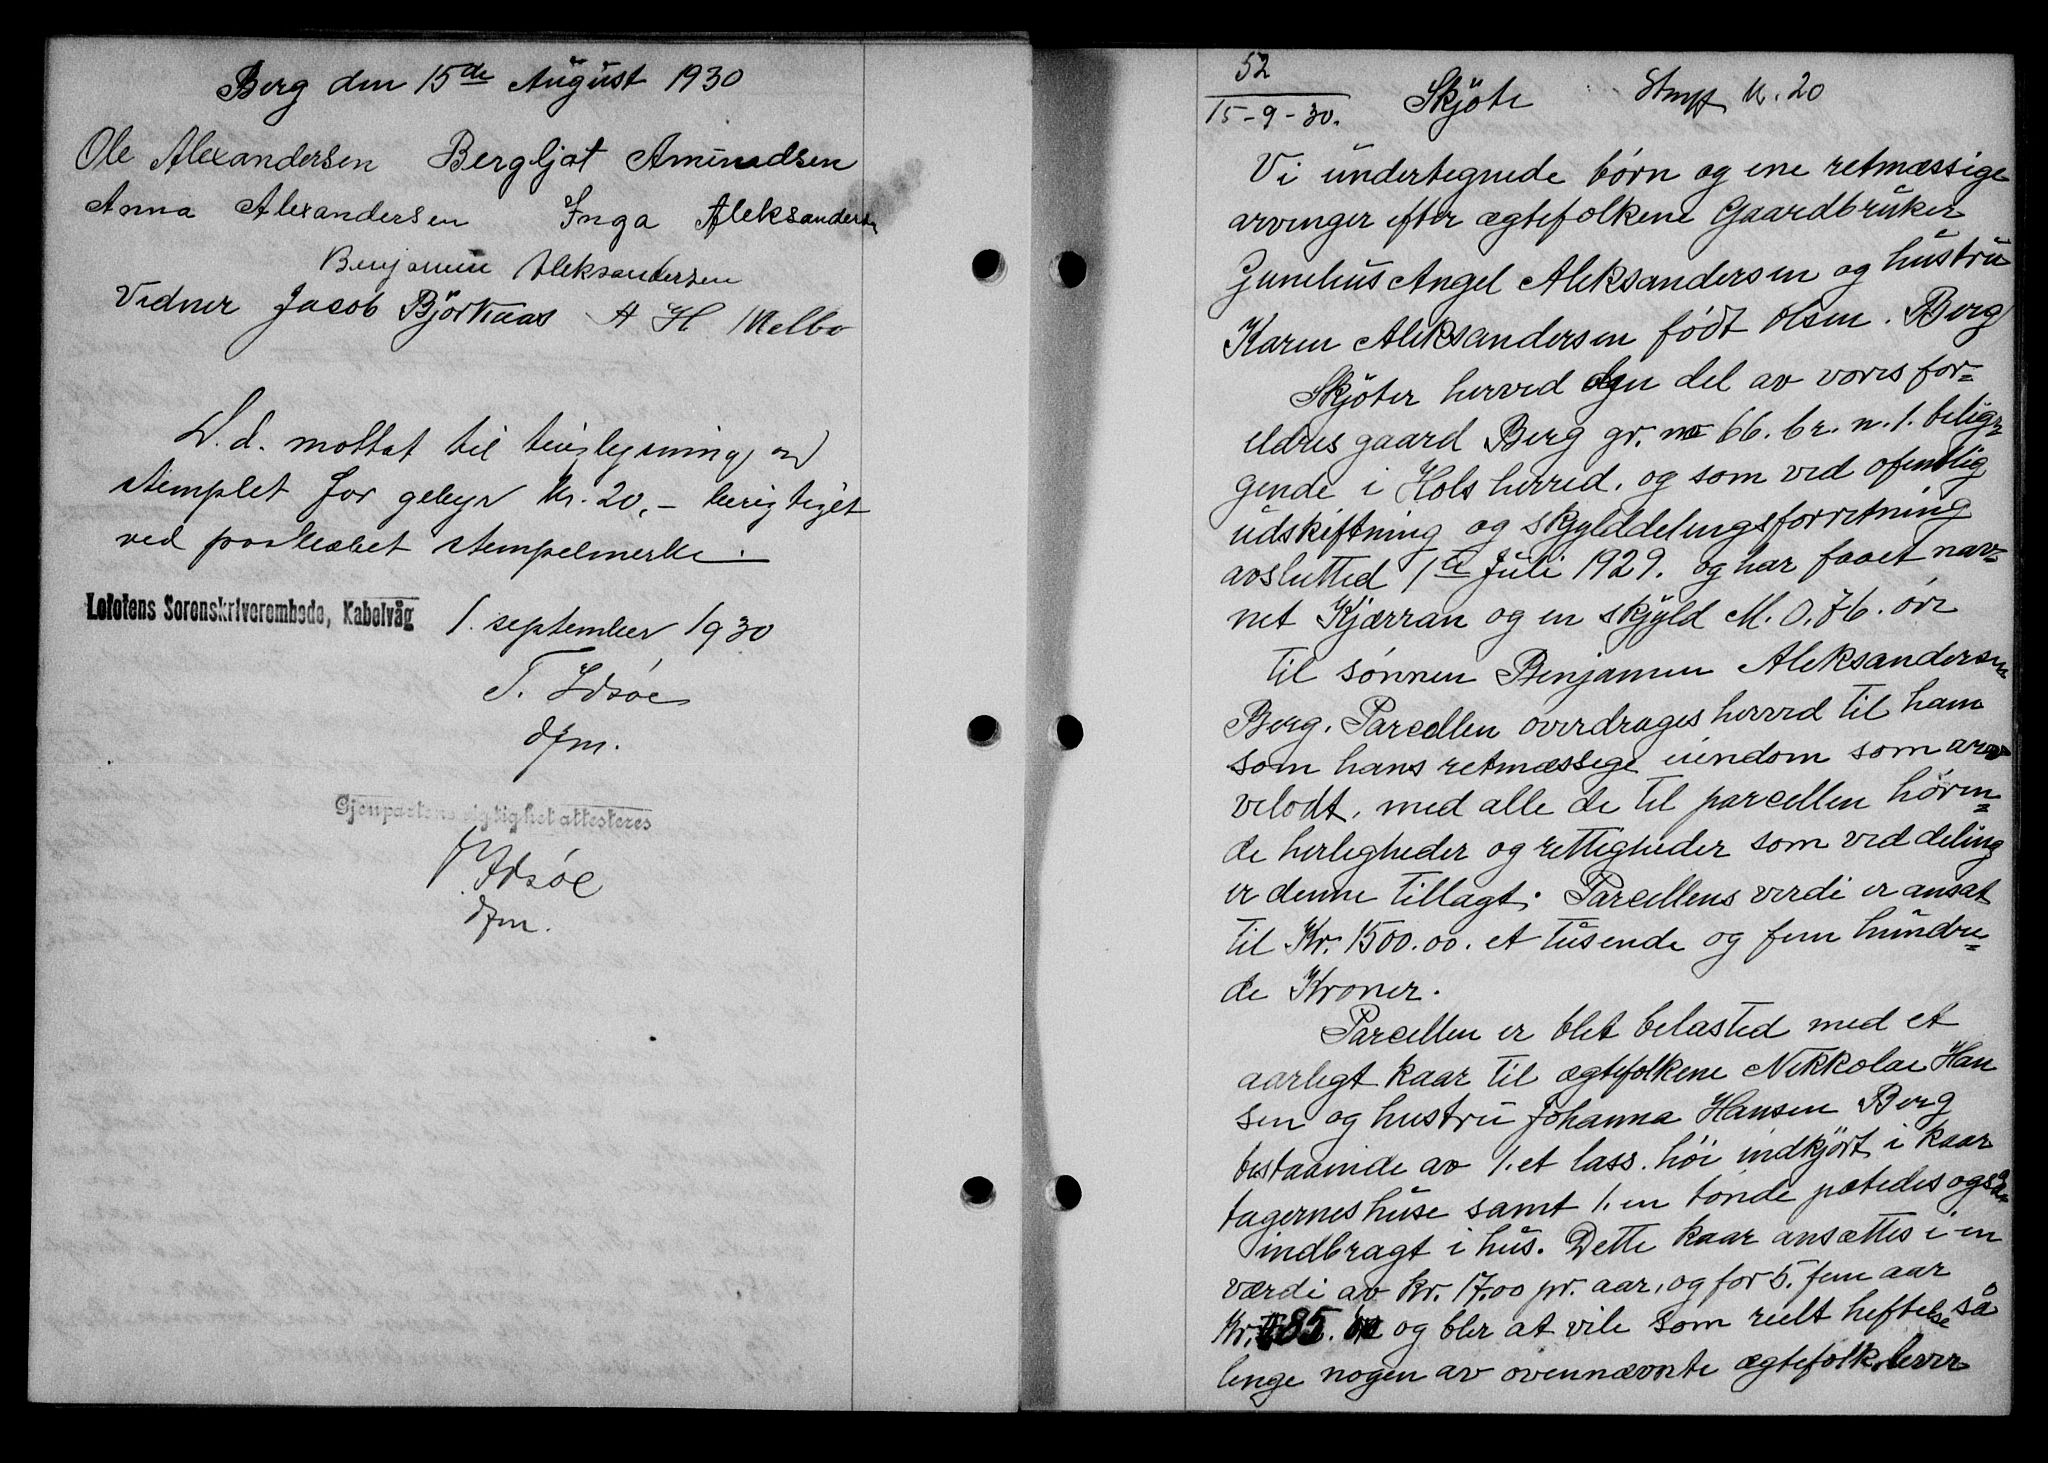 Berg den 15de August 1930
Ole Alexandersen Bergljot Amundsen
Anna Alexandersen Inga Aleksandersen
Benjamin Aleksandersen
Vidner Jacob Björkaas A H Melbo
D.d. mottat til tinglysning og
stemplet for gebyr kr. 20,- berigtiget
ved paaklæbet stempelmerke.
Lofotens Sorenskriverembede, Kabelvåg 1. september 1930
T. Idsöe
dfm.
Gjenpartens rigtighet attesteres
T. Idsöe
dfm.
52
15-9-30. Skjöte Stmpl. kr. 20
Vi undertegnede börn og ene retmæssige
arvinger efter ægtefolkene Gaardbruker
Angel Aleksandersen og hustru
Karen Aleksandersen födt Olsen. Berg
Skjöter herved den del av vores for=
eldres gaard Berg gr. no 66. br. n. 1. belig=
gende i Hols herred. og som ved ofentlig
udskiftning og skylddelingsforretning
avslutted 1ste Juli 1929. og har faaet nav=
net Kjærran og en skyld M. 0.76. öre
til sönnen Benjamin Aleksandersen
Berg. Parcellen overdrages herved til ham
som hans retmæssige eiendom som ar=
velodt. med alle de til parcellen hören=
de herligheder og rettigheder som ved deling
er denne tillagt. Parcellens verdi er ansat
til Kr. 1500.00. et tusende og fem hundre=
de Kroner.
Parcellen er blet belasted med et
aarligt kaar til ægtefolkene Nikkolai Han
sen og hustru Johanna Hansen Berg
bestaaende av 1. et lass. höi indkjört i kaar
tagernes huse samt 1. en tönde poteder også=
indbragt i hus. Dette kaar ansættes i en
værdi av kr. 17.00 pr. aar, og for 5. fem aar
Kr. 85.00 og bler at vile som reelt heftelse så
lenge nogen av ovennævnte ægtefolk lever